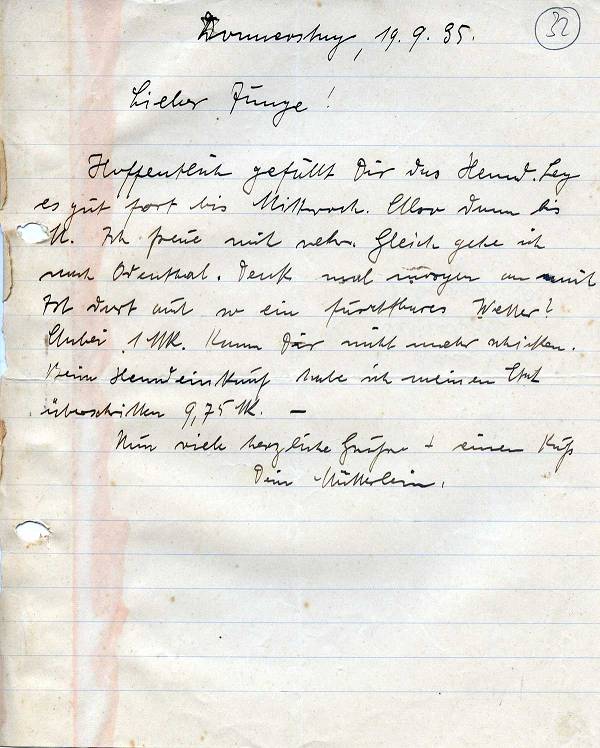 Donnerstag, 19.9.35.
32
Lieber Junge!
Hoffentlich gefällt Dir das Hemd. Leg
es gut fort bis Mittwoch. Also dann bis
M. Ich freue mich sehr. Gleich gehe ich
nach Odenthal. Denk mal morgen an mich
Ist dort auch so ein furchtbares Wetter?
Anbei 1 Mk. Kann Dir nicht mehr schicken.
Beim Hemdeinkauf habe ich meinen Etat
überschritten 9,75 M. —
Nun viele herzliche Grüße + einen Kuß
Dein Mütterlein.